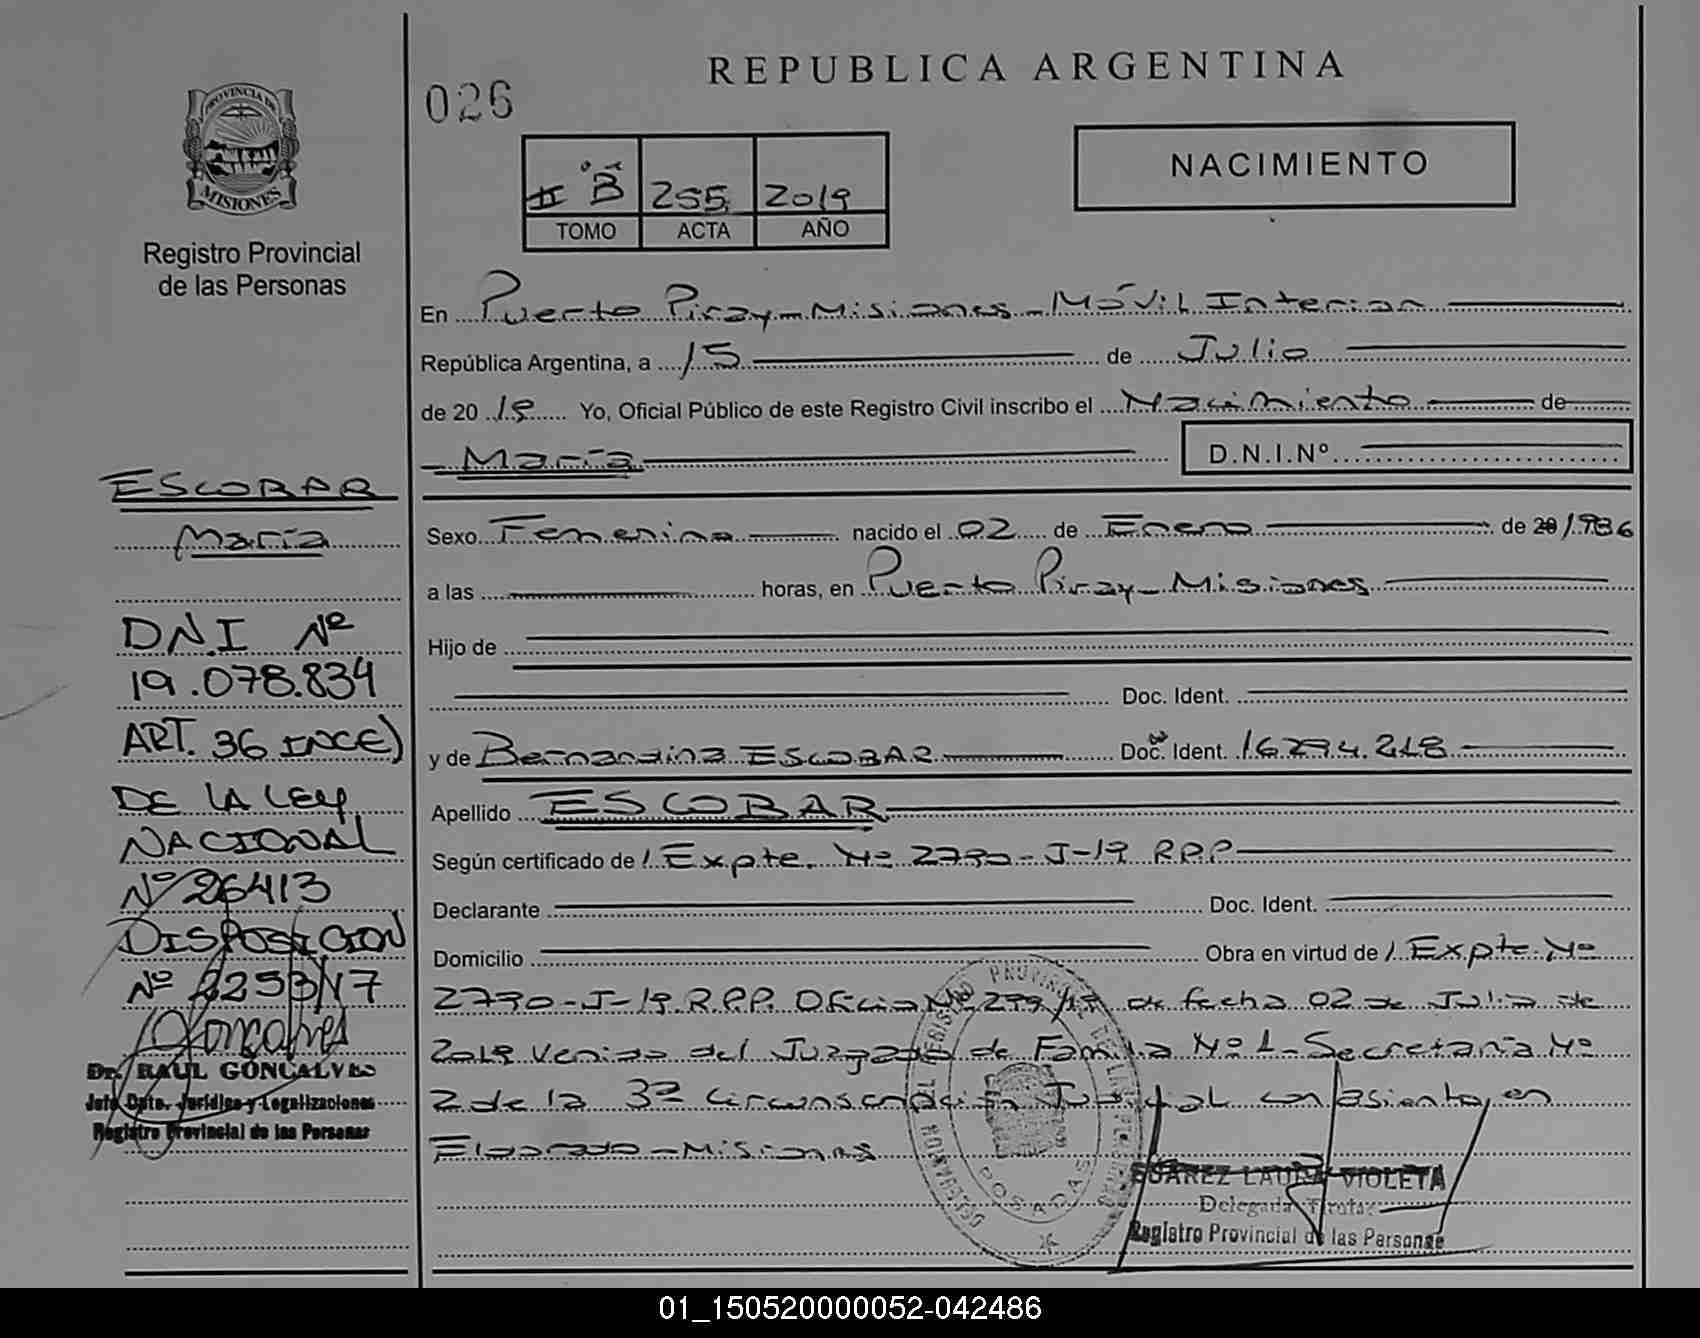 REPUBLICA ARGENTINA
026
PROVINCIA DE
MISIONES
Registro Provincial
de las Personas
II "B" 255 2019
TOMO ACTA AÑO
NACIMIENTO
En Puerto Piray - Misiones - Móvil Interior
República Argentina, a 15 de Julio
de 20 19 Yo, Oficial Público de este Registro Civil inscribo el Nacimiento de
María D.N.I.Nº
ESCOBAR
María
DN.I Nº
19.078.834
ART. 36 INC E)
DE LA LEY
NACIONAL
Nº 26413
DISPOSICION
Nº 2253/17
Dr. RAUL GONCALVES
Jefe Dpto. Jurídico y Legalizaciones
Registro Provincial de las Personas
Sexo Femenino nacido el 02 de Enero de 20/1986
a las horas, en Puerto Piray - Misiones
Hijo de
Doc. Ident.
y de Bernardina ESCOBAR Doc. Ident. 16.294.218
Apellido ESCOBAR
Según certificado de / Expte. Nº 2790-J-19 RPP
Declarante Doc. Ident.
Domicilio Obra en virtud de / Expte. Nº
2790-J-19.R.P.P. Oficio Nº 299/19 de fecha 02 de Julio de
2019 Venido del Juzgado de Familia Nº 1 - Secretaría Nº
2 de la 3ª Circunscripción Judicial con asiento en
Eldorado - Misiones
POSADAS
SUAREZ LAURA VIOLETA
Delegada
Registro Provincial de las Personas
01_150520000052-042486